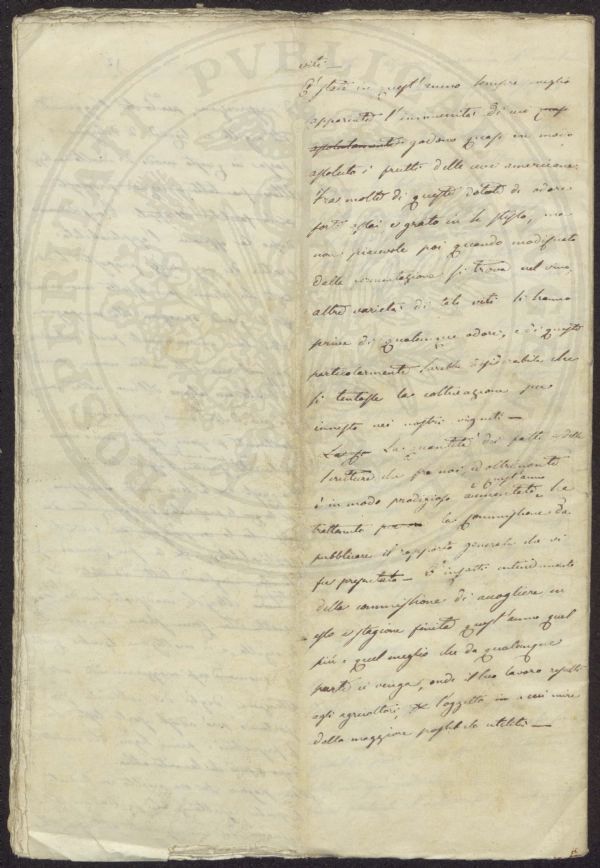 viti —
E' stata in quest'anno sempre meglio
apparente l'immunità di cui
assolutamente godono quasi in modo
assoluto i frutti delle uve americane.
Tra molte di queste dotate di odore
forte assai e grato in se stesso, ma
non piacevole poi quando modificato
dalla fermentazione si trova nel vino,
altre varietà di tali viti si hanno
prive di qualunque odore, e di queste
particolarmente sarebbe desiderabile che
si tentasse la coltivazione per
innesto nei nostri vigneti —
La quantità dei fatti e delle
scritture che fra noi ed oltremonte
è in modo prodigioso aumentata quest'anno ha
trattenuto la Commissione da
pubblicare il rapporto generale che vi
fu presentato — E' infatti intendimento
della commissione di accogliere in
esso a stagione finita quest'anno quel
più e quel meglio che da qualunque
parte ci venga, onde il suo lavoro
agli agricoltori, l'oggetto in cui mire
della maggiore possibile utilità —
PVBLICA
PROSPERITATI